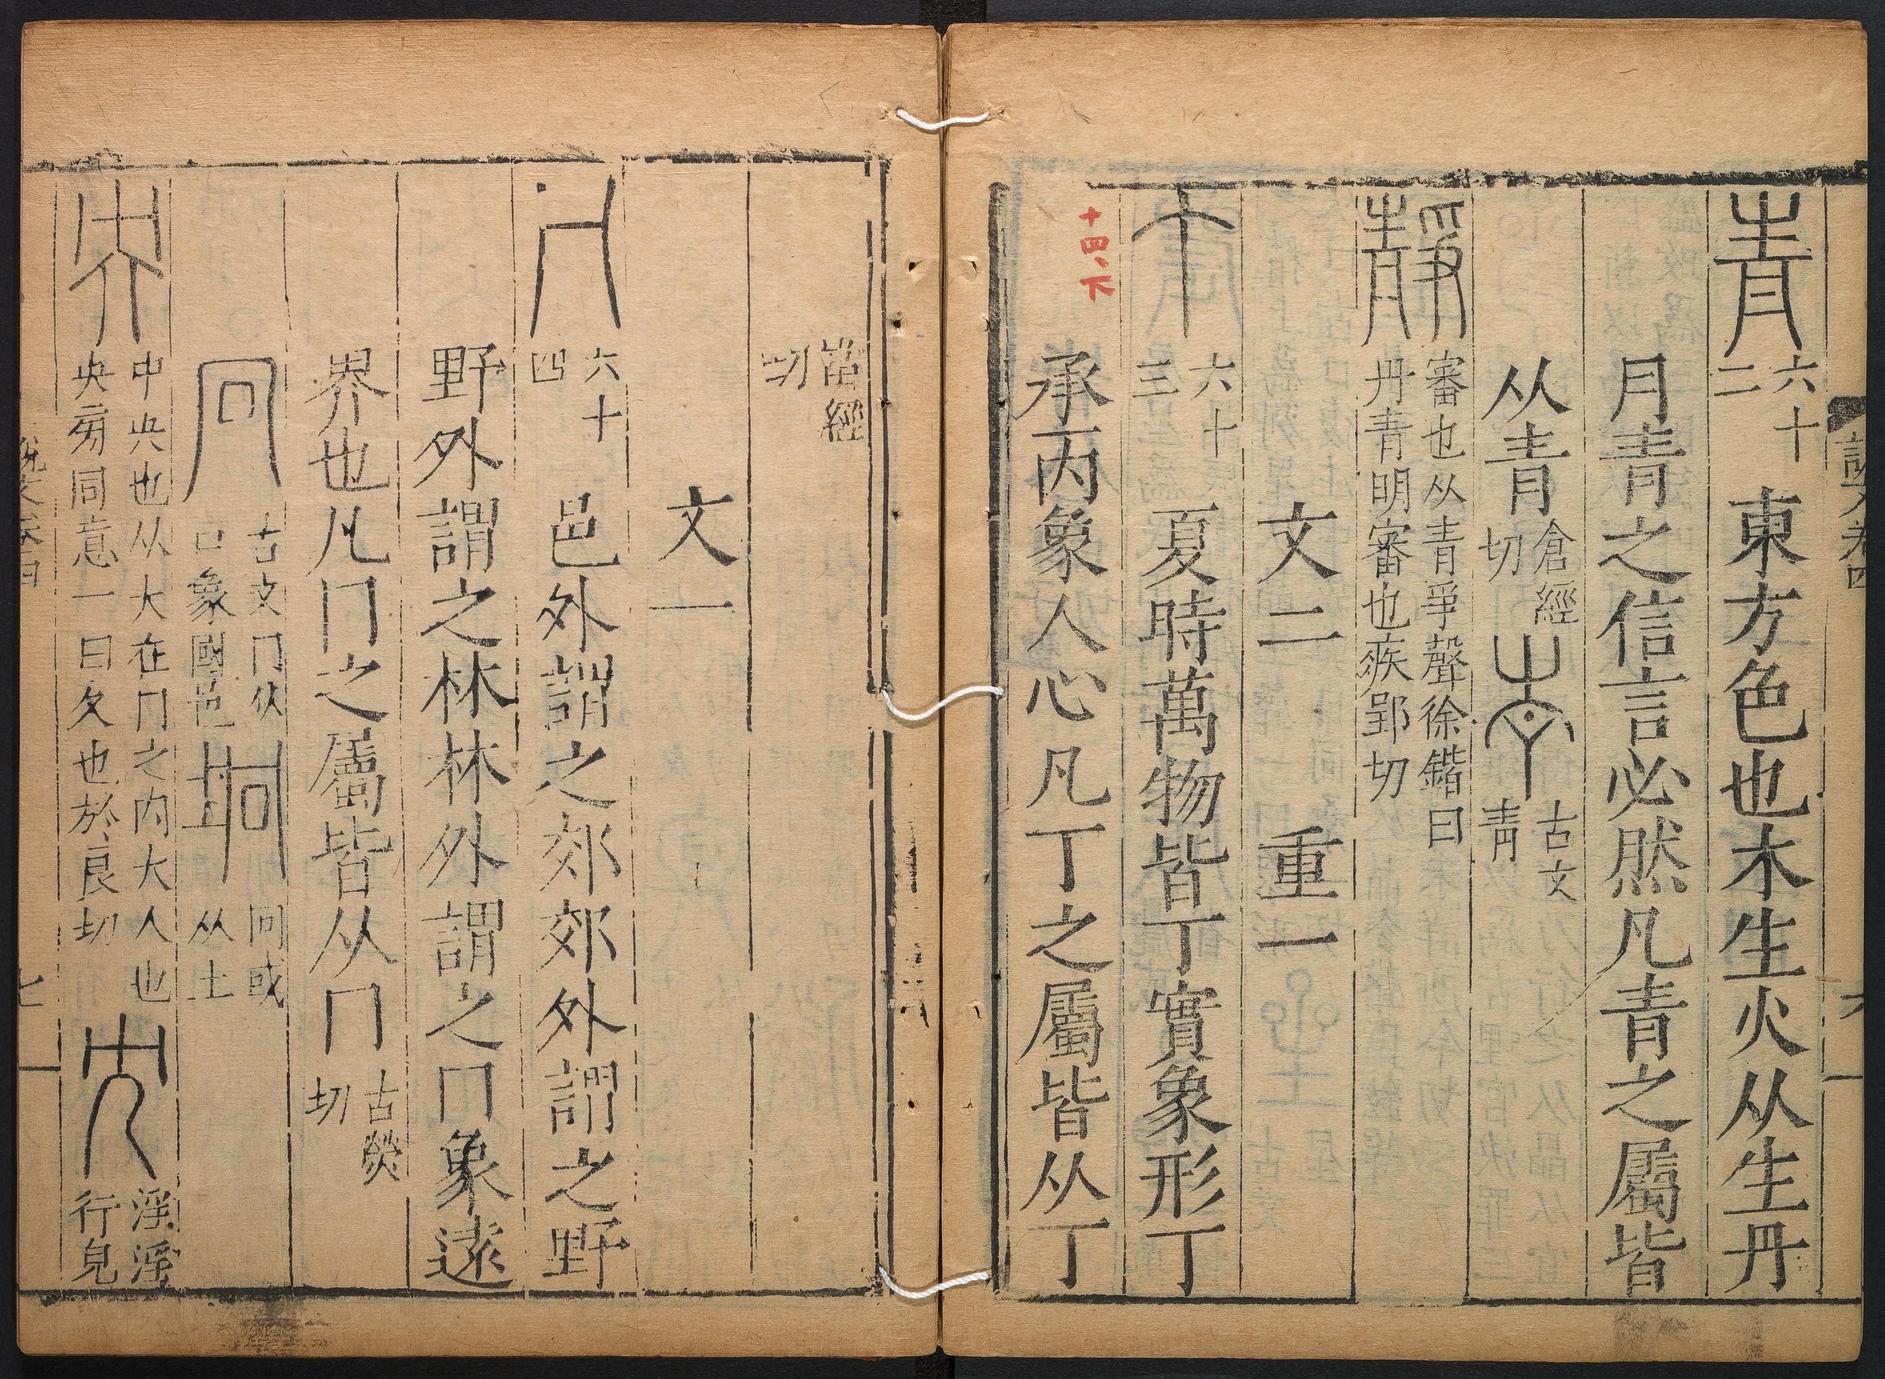 青 六十二 東方色也木生火从生丹
月青之信言必然凡青之屬皆
从青 倉經切 𡴑 古文青
靜 審也从青爭聲徐鍇曰丹青明審也疾郢切
文二 重一
丁 六十三 夏時萬物皆丁實象形丁
承丙象人心凡丁之屬皆从丁
十四、下
當經切
文一
冂 六十四 邑外謂之郊郊外謂之野
野外謂之林林外謂之冂象遠
界也凡冂之屬皆从冂 古熒切
冋 古文冂从口象國邑 坰 冋或从土
央 中央也从大在冂之内大人也央㫄同意一曰久也於良切 冘 淫淫行皃
說文卷四
七
說文卷四
六